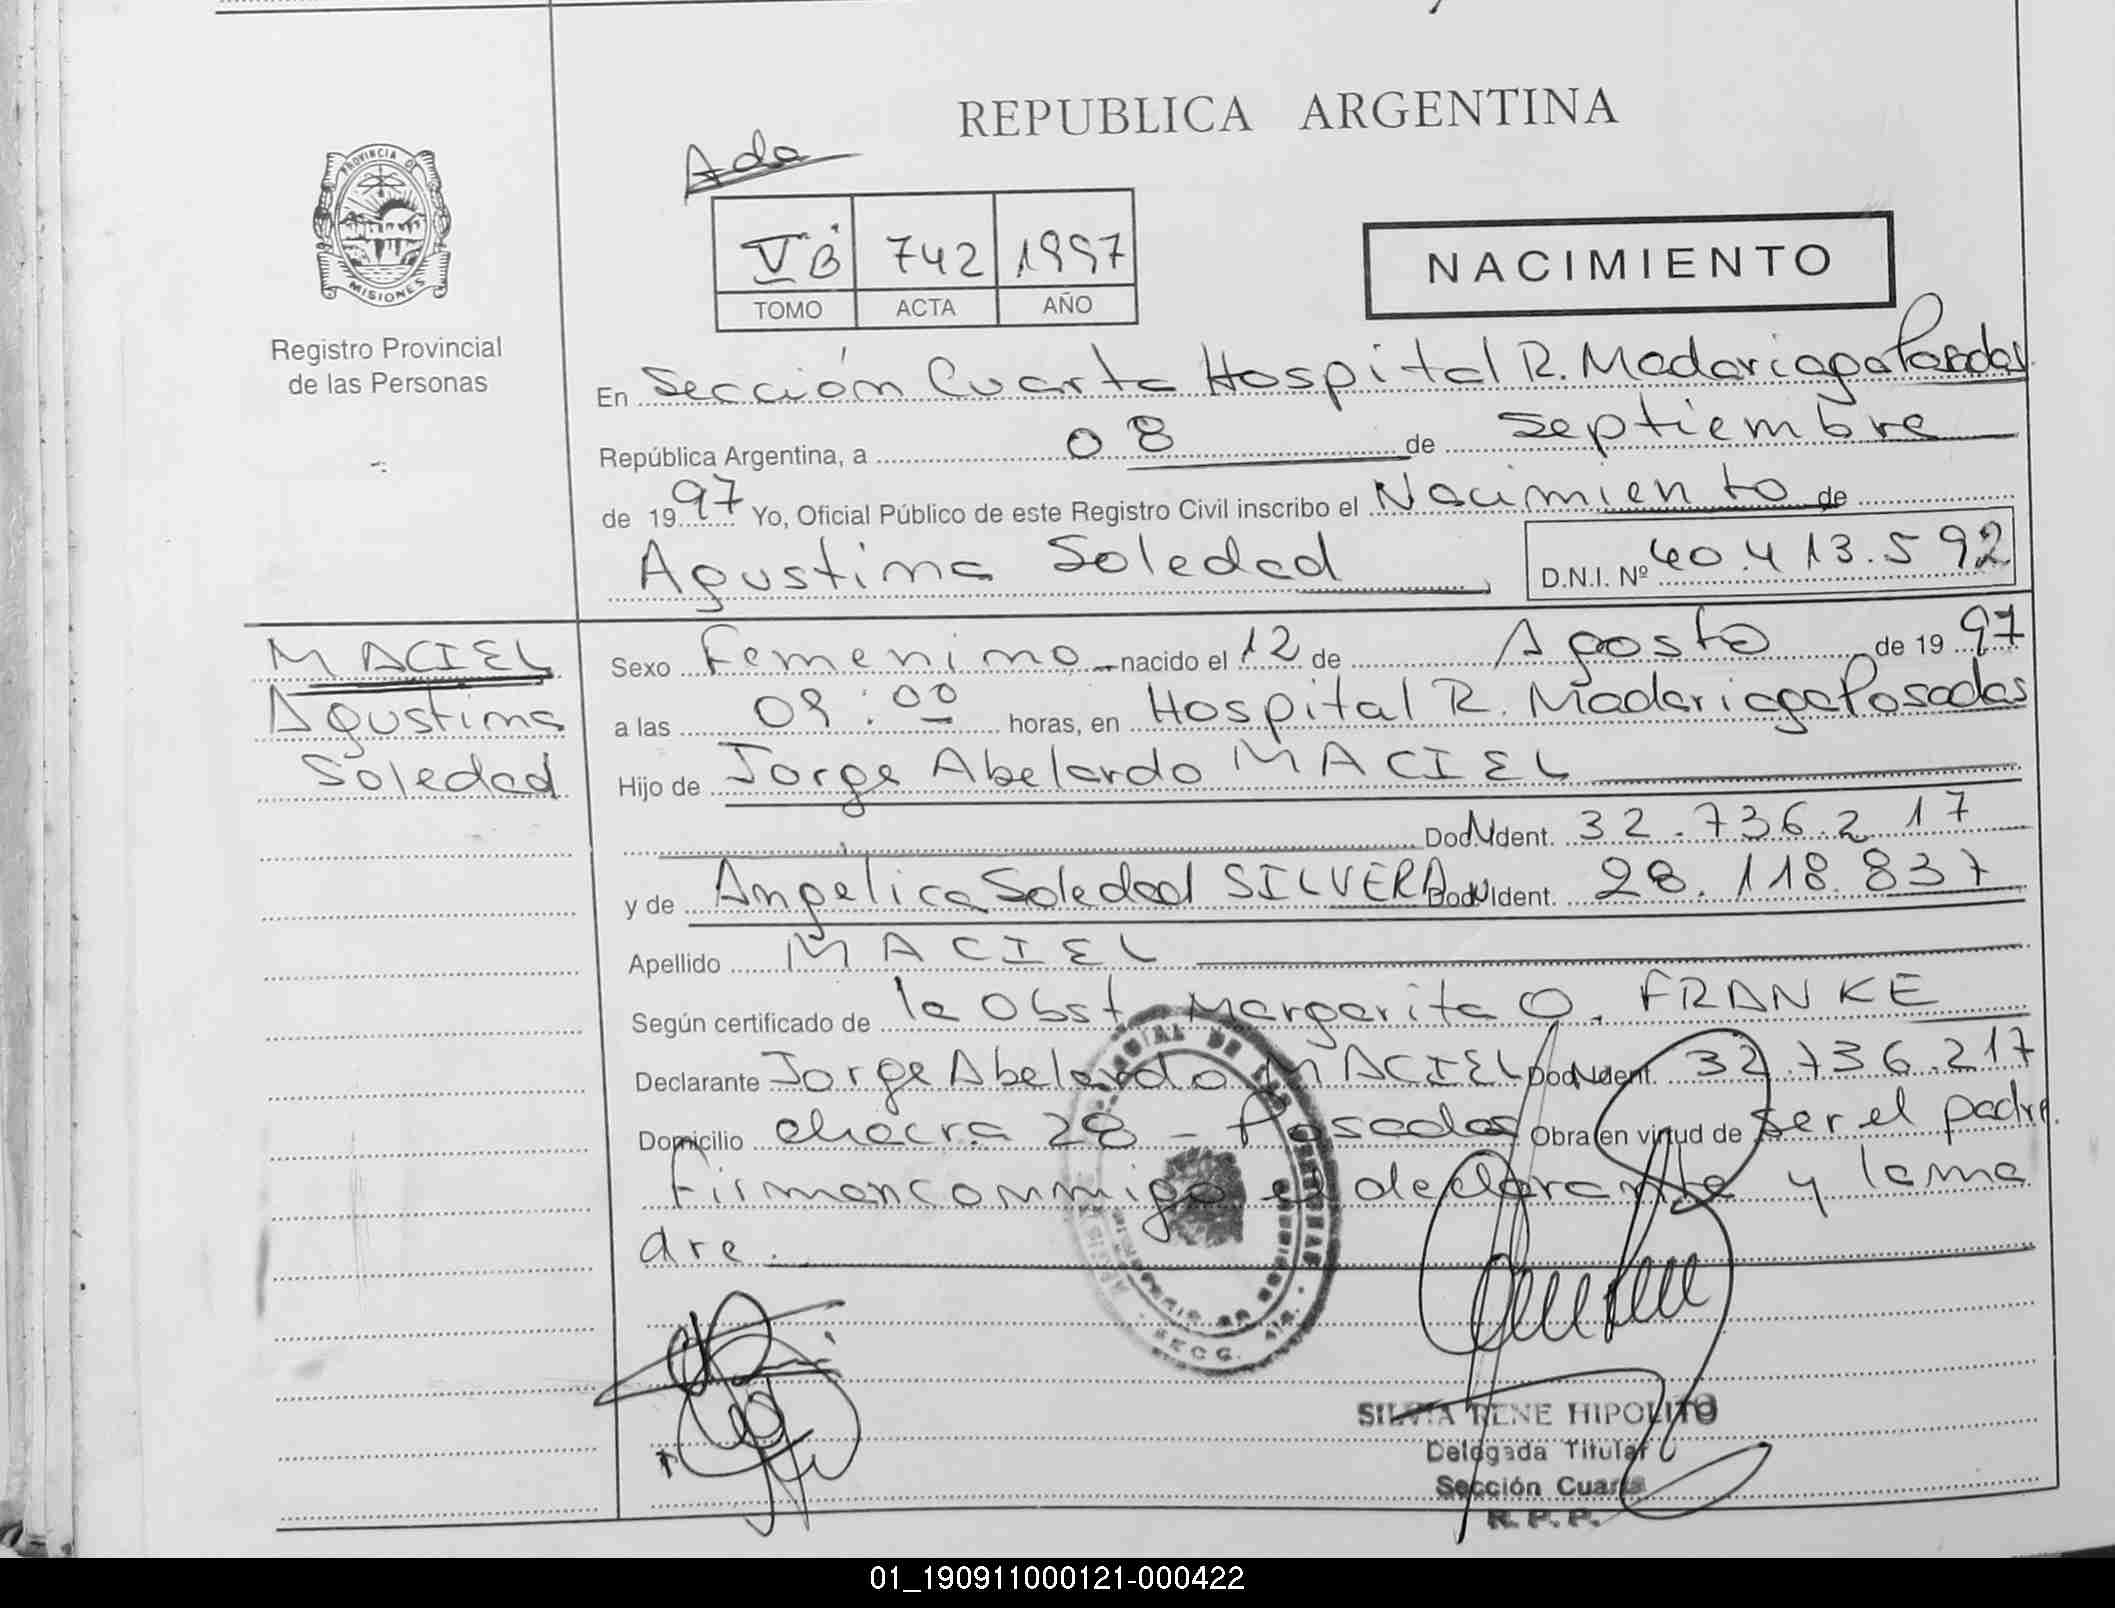 REPUBLICA ARGENTINA
Ada
PROVINCIA DE
MISIONES
V B 742 1997
TOMO ACTA AÑO
NACIMIENTO
Registro Provincial
de las Personas
En Sección Cuarta Hospital R. Madariaga Posadas
República Argentina, a 08 de septiembre
de 1997 Yo, Oficial Público de este Registro Civil inscribo el Nacimiento de
Agustina Soledad D.N.I. Nº 40.413.592
MACIEL
Agustina
Soledad
Sexo Femenino nacido el 12 de Agosto de 1997
a las 09:00 horas, en Hospital R. Madariaga Posadas
Hijo de Jorge Abelardo MACIEL
Doc. Ident. 32.736.217
y de Angélica Soledad SILVERA Doc. Ident. 28.118.837
Apellido MACIEL
Según certificado de la Obst. Margarita O. FRANKE
Declarante Jorge Abelardo MACIEL Doc. Ident. 32.736.217
Domicilio chacra 28 - Posadas Obra en virtud de ser el padre.
Firman conmigo el declarante y la ma
dre.
SILVIA RENE HIPOLITO
Delegada Titular
Sección Cuarta
R. P. P.
01_190911000121-000422